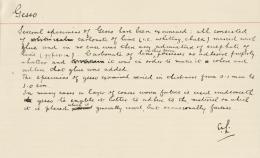 Gesso
Several specimens of Gesso have been examined: all consisted
of carbonate of lime (i.e. whiting, chalk) mixed with
glue and in no case was there any admixture of sulphate of
lime (gypsum). Carbonate of lime possesses no adhesive property
whatever and it was in order to make it adhere
that glue was added.
The specimens of gesso examined varied in thickness from 0.1 mm to
In many cases a layer of coarse woven fabric is used underneath
the gesso to enable it better to adhere to the material on which
it is placed, generally wood, but occasionally